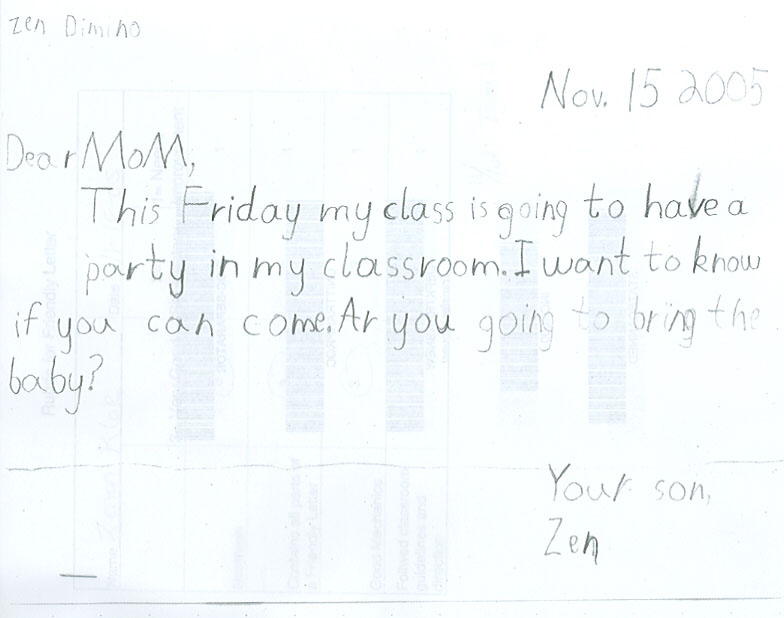 Zen Dimino
Nov. 15 2005
Dear MoM,
This Friday my class is going to have a
party in my classroom. I want to know
if you can come. Ar you going to bring the
baby?
Your son,
Zen